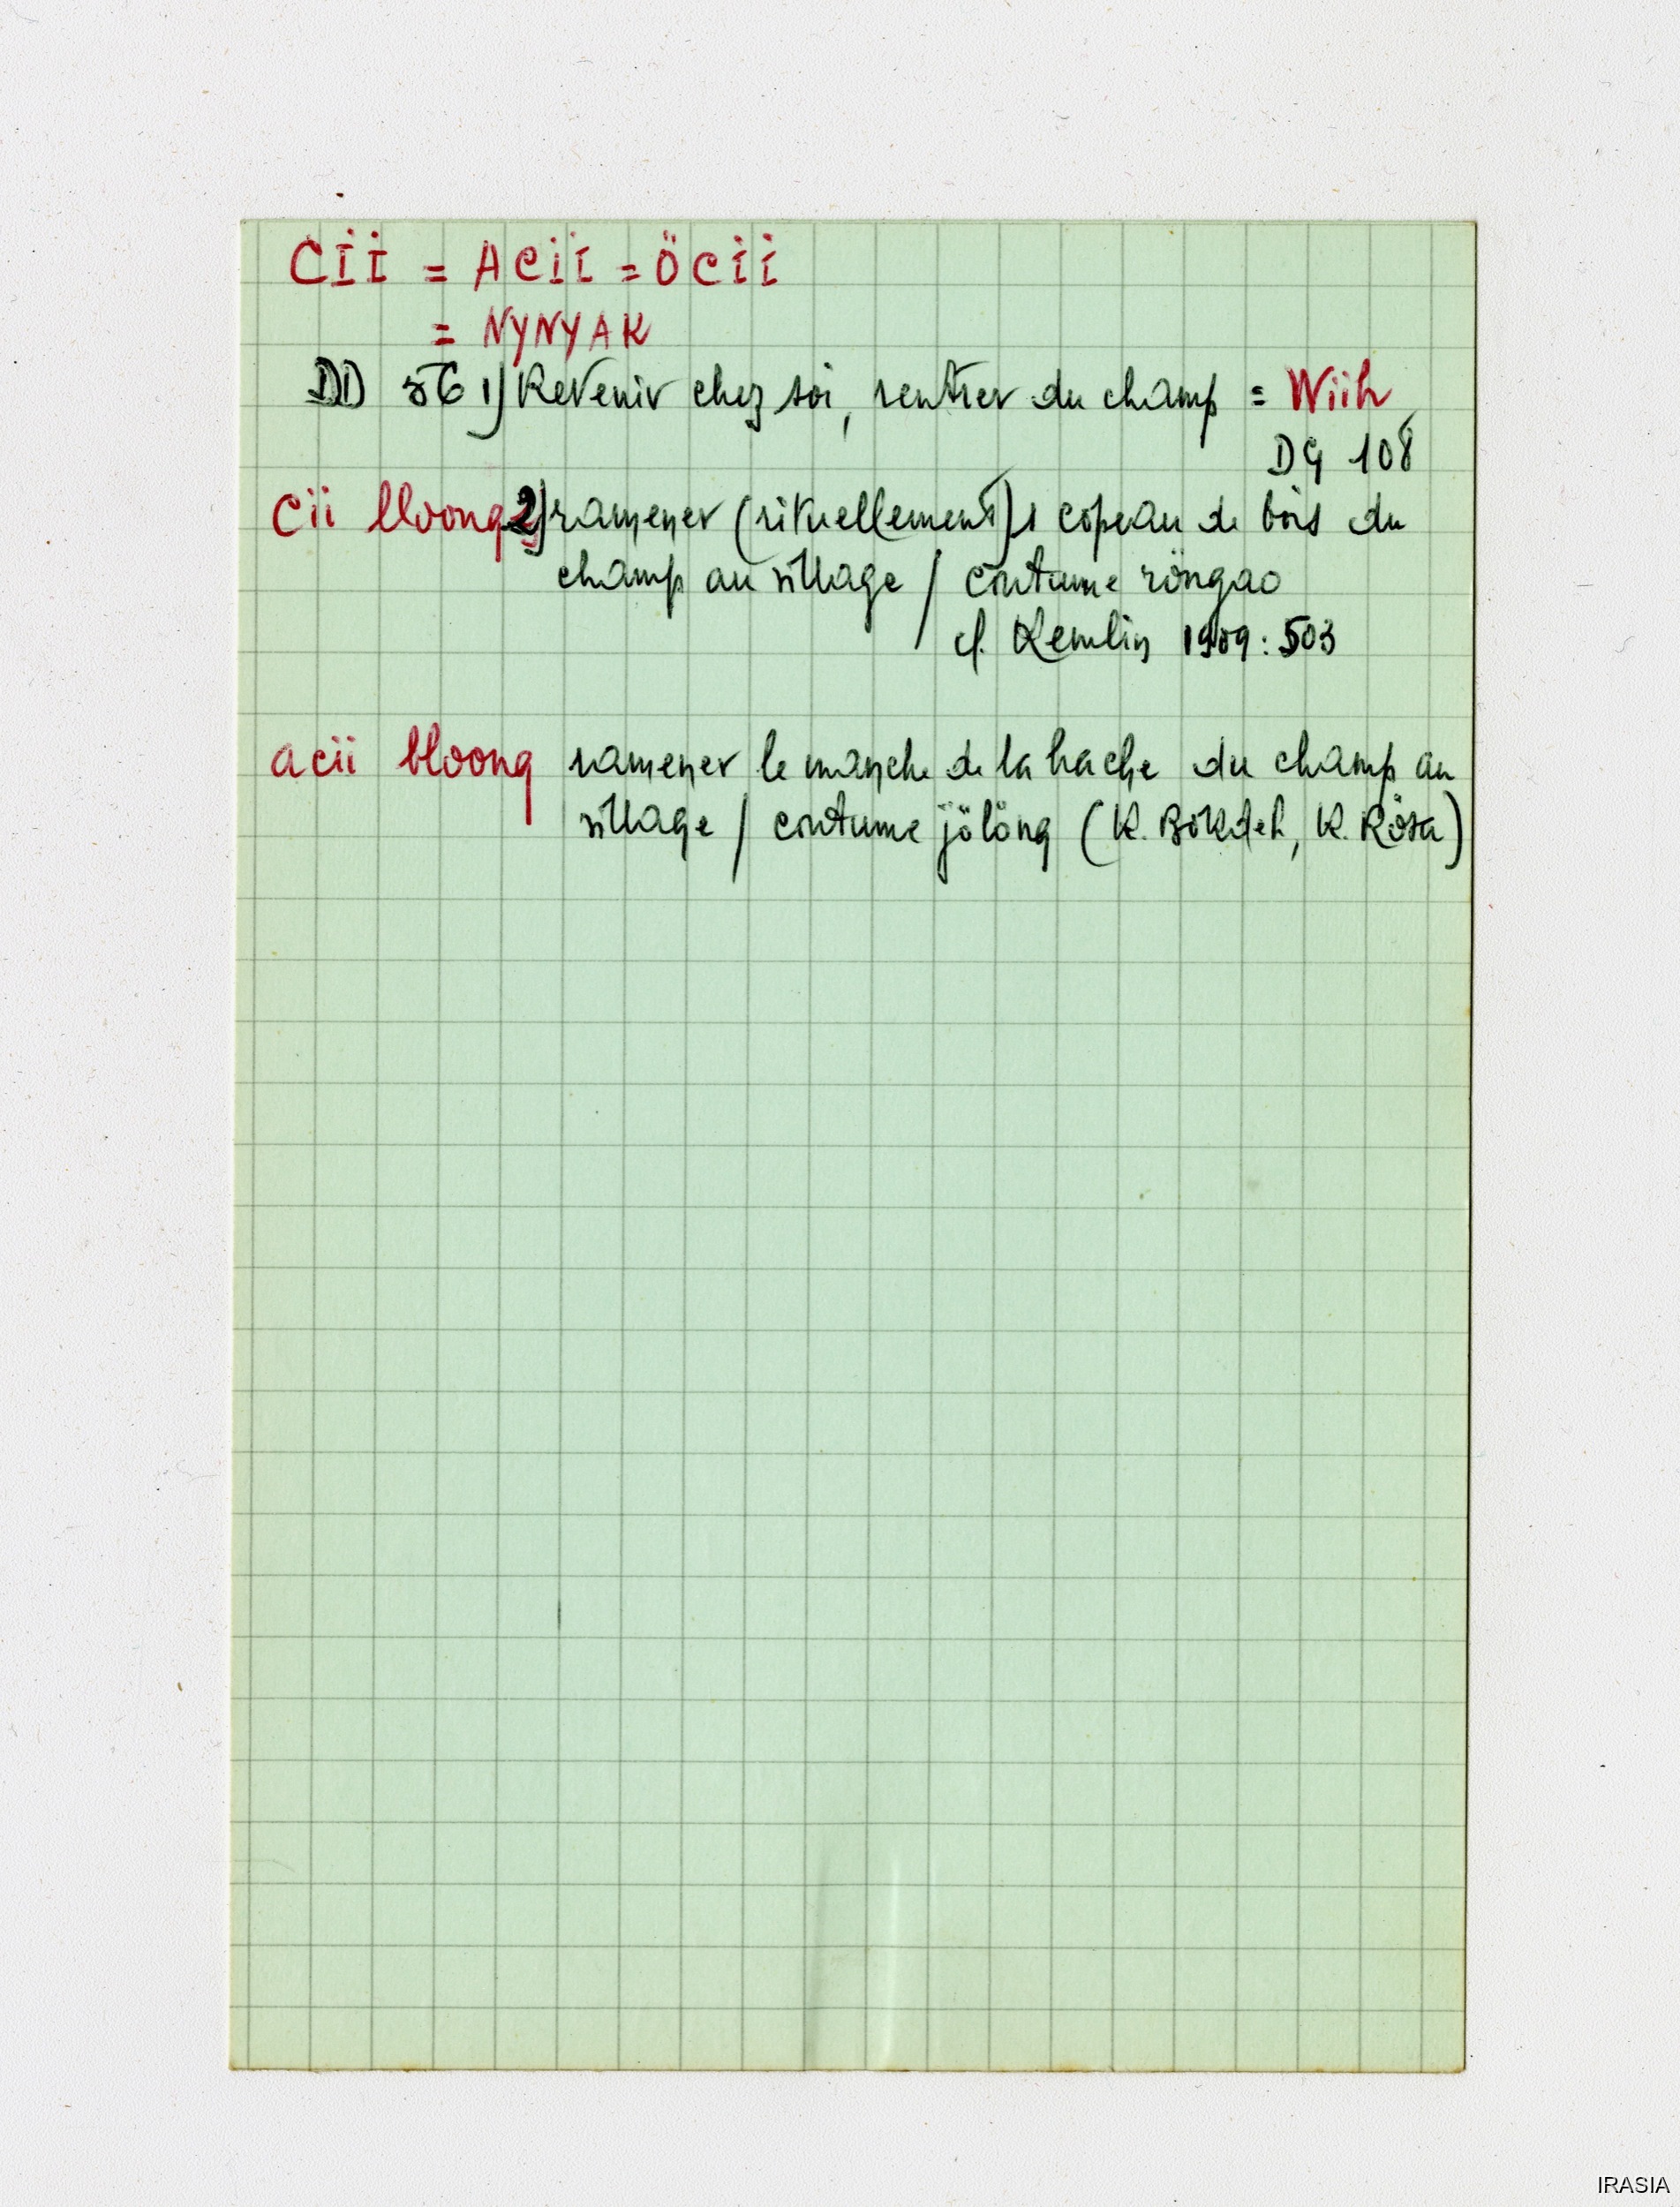 CII = ACII = ÖCII
= NYNYAK
DD 56 1) Revenir chez soi, rentrer du champ = Wiih
DG 108
cii bloong 2) ramener (rituellement) 1 copeau de bois du
champ au village / coutume röngao
cf. Kemlin 1909 : 503
acii bloong ramener le manche de la hache du champ au
village / coutume jölöng (K. Bökdeh, K. Rösa)
IRASIA